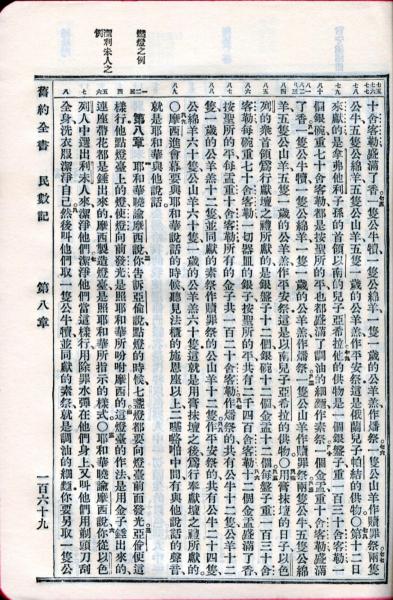 十舍客勒盛滿了香一隻公牛犢一隻公綿羊一隻一歲的公羊羔作燔祭一隻公山羊作贖罪祭兩隻
公牛五隻公綿羊五隻公山羊五隻一歲的公羊羔作平安祭這是俄蘭兒子帕結的供物〇第十二日
來獻的是拿弗他利子孫的首領以南的兒子亞希拉他的供物是一個銀盤子重一百三十舍客勒一
個銀碗重七十舍客勒都是按聖所的平也都盛滿了調油的細麵作素祭一個金盂重十舍客勒盛滿
了香一隻公牛犢一隻公綿羊一隻一歲的公羊羔作燔祭一隻公山羊作贖罪祭兩隻公牛五隻公綿
羊五隻公山羊五隻一歲的公羊羔作平安祭這是以南兒子亞希拉的供物〇用膏抹壇的日子以色
列的衆首領爲行獻壇之禮所獻的是銀盤子十二個銀碗十二個金盂十二個每盤子重一百三十舍
客勒每碗重七十舍客勒一切器皿的銀子按聖所的平共有二千四百舍客勒十二個金盂盛滿了香
按聖所的平每盂重十舍客勒所有的金子共一百二十舍客勒作燔祭的共有公牛十二隻公羊十二
隻一歲的公羊羔十二隻並同獻的素祭作贖罪祭的公山羊十二隻作平安祭的共有公牛二十四隻
公綿羊六十隻公山羊六十隻一歲的公羊羔六十隻這就是用膏抹壇之後爲行奉獻壇之禮所獻的
〇摩西進會幕要與耶和華說話的時候聽見法櫃的施恩座以上二中間有與他說話的聲音
就是耶和華與他說話
燃燈之例
第八章 耶和華曉諭摩西說你告訴亞倫說點燈的時候七盞燈都要向燈臺前面發光亞倫便這
樣行他點燈臺上的燈使燈向前發光是照耶和華所吩咐摩西的這燈臺的作法是用金子錘出來的
連座帶花都是錘出來的摩西製造燈臺是照耶和華所指示的樣式〇耶和華曉諭摩西說你從以色
潔利未人之例
列人中選出利未人來潔淨他們潔淨他們當這樣行用除罪水彈在他們身上又叫他們用剃頭刀刮
全身洗衣服潔淨自己然後叫他們取一隻公牛犢並同獻的素祭就是調油的細麵你要另取一隻公
舊約全書 民數記 第八章 一百六十九